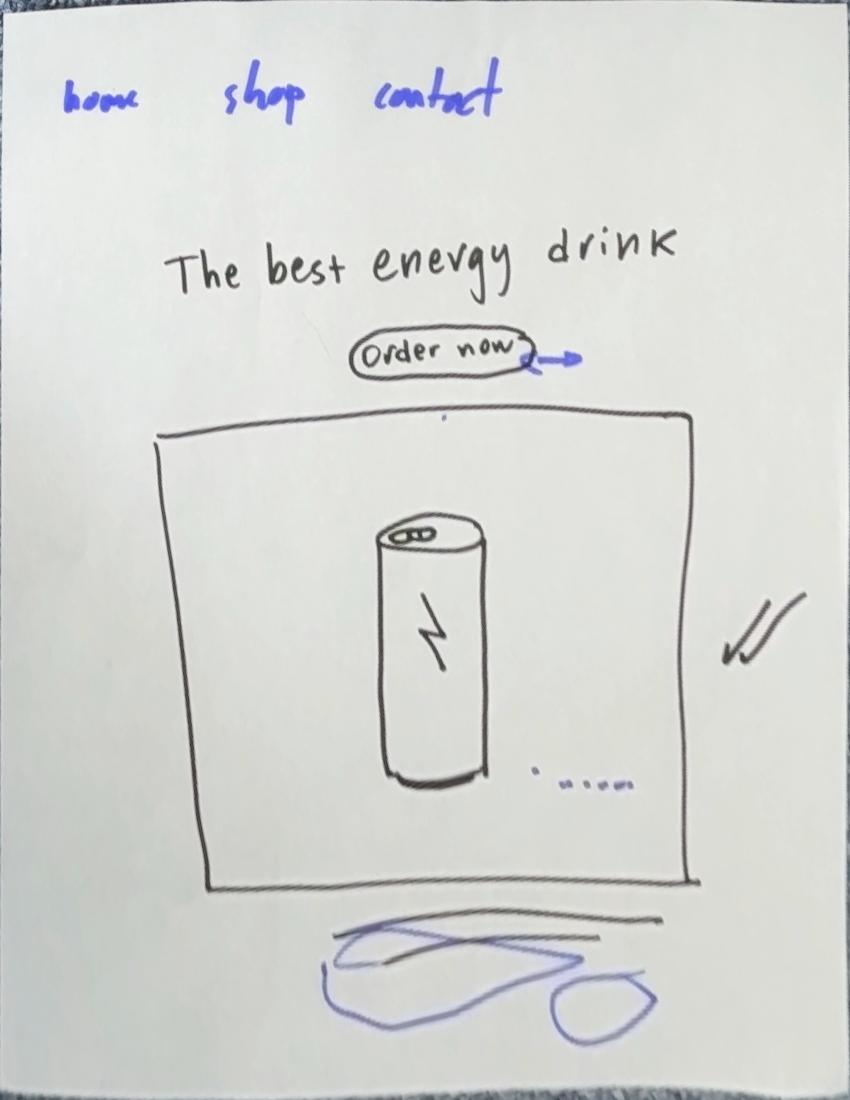 home shop contact
The best energy drink
Order now